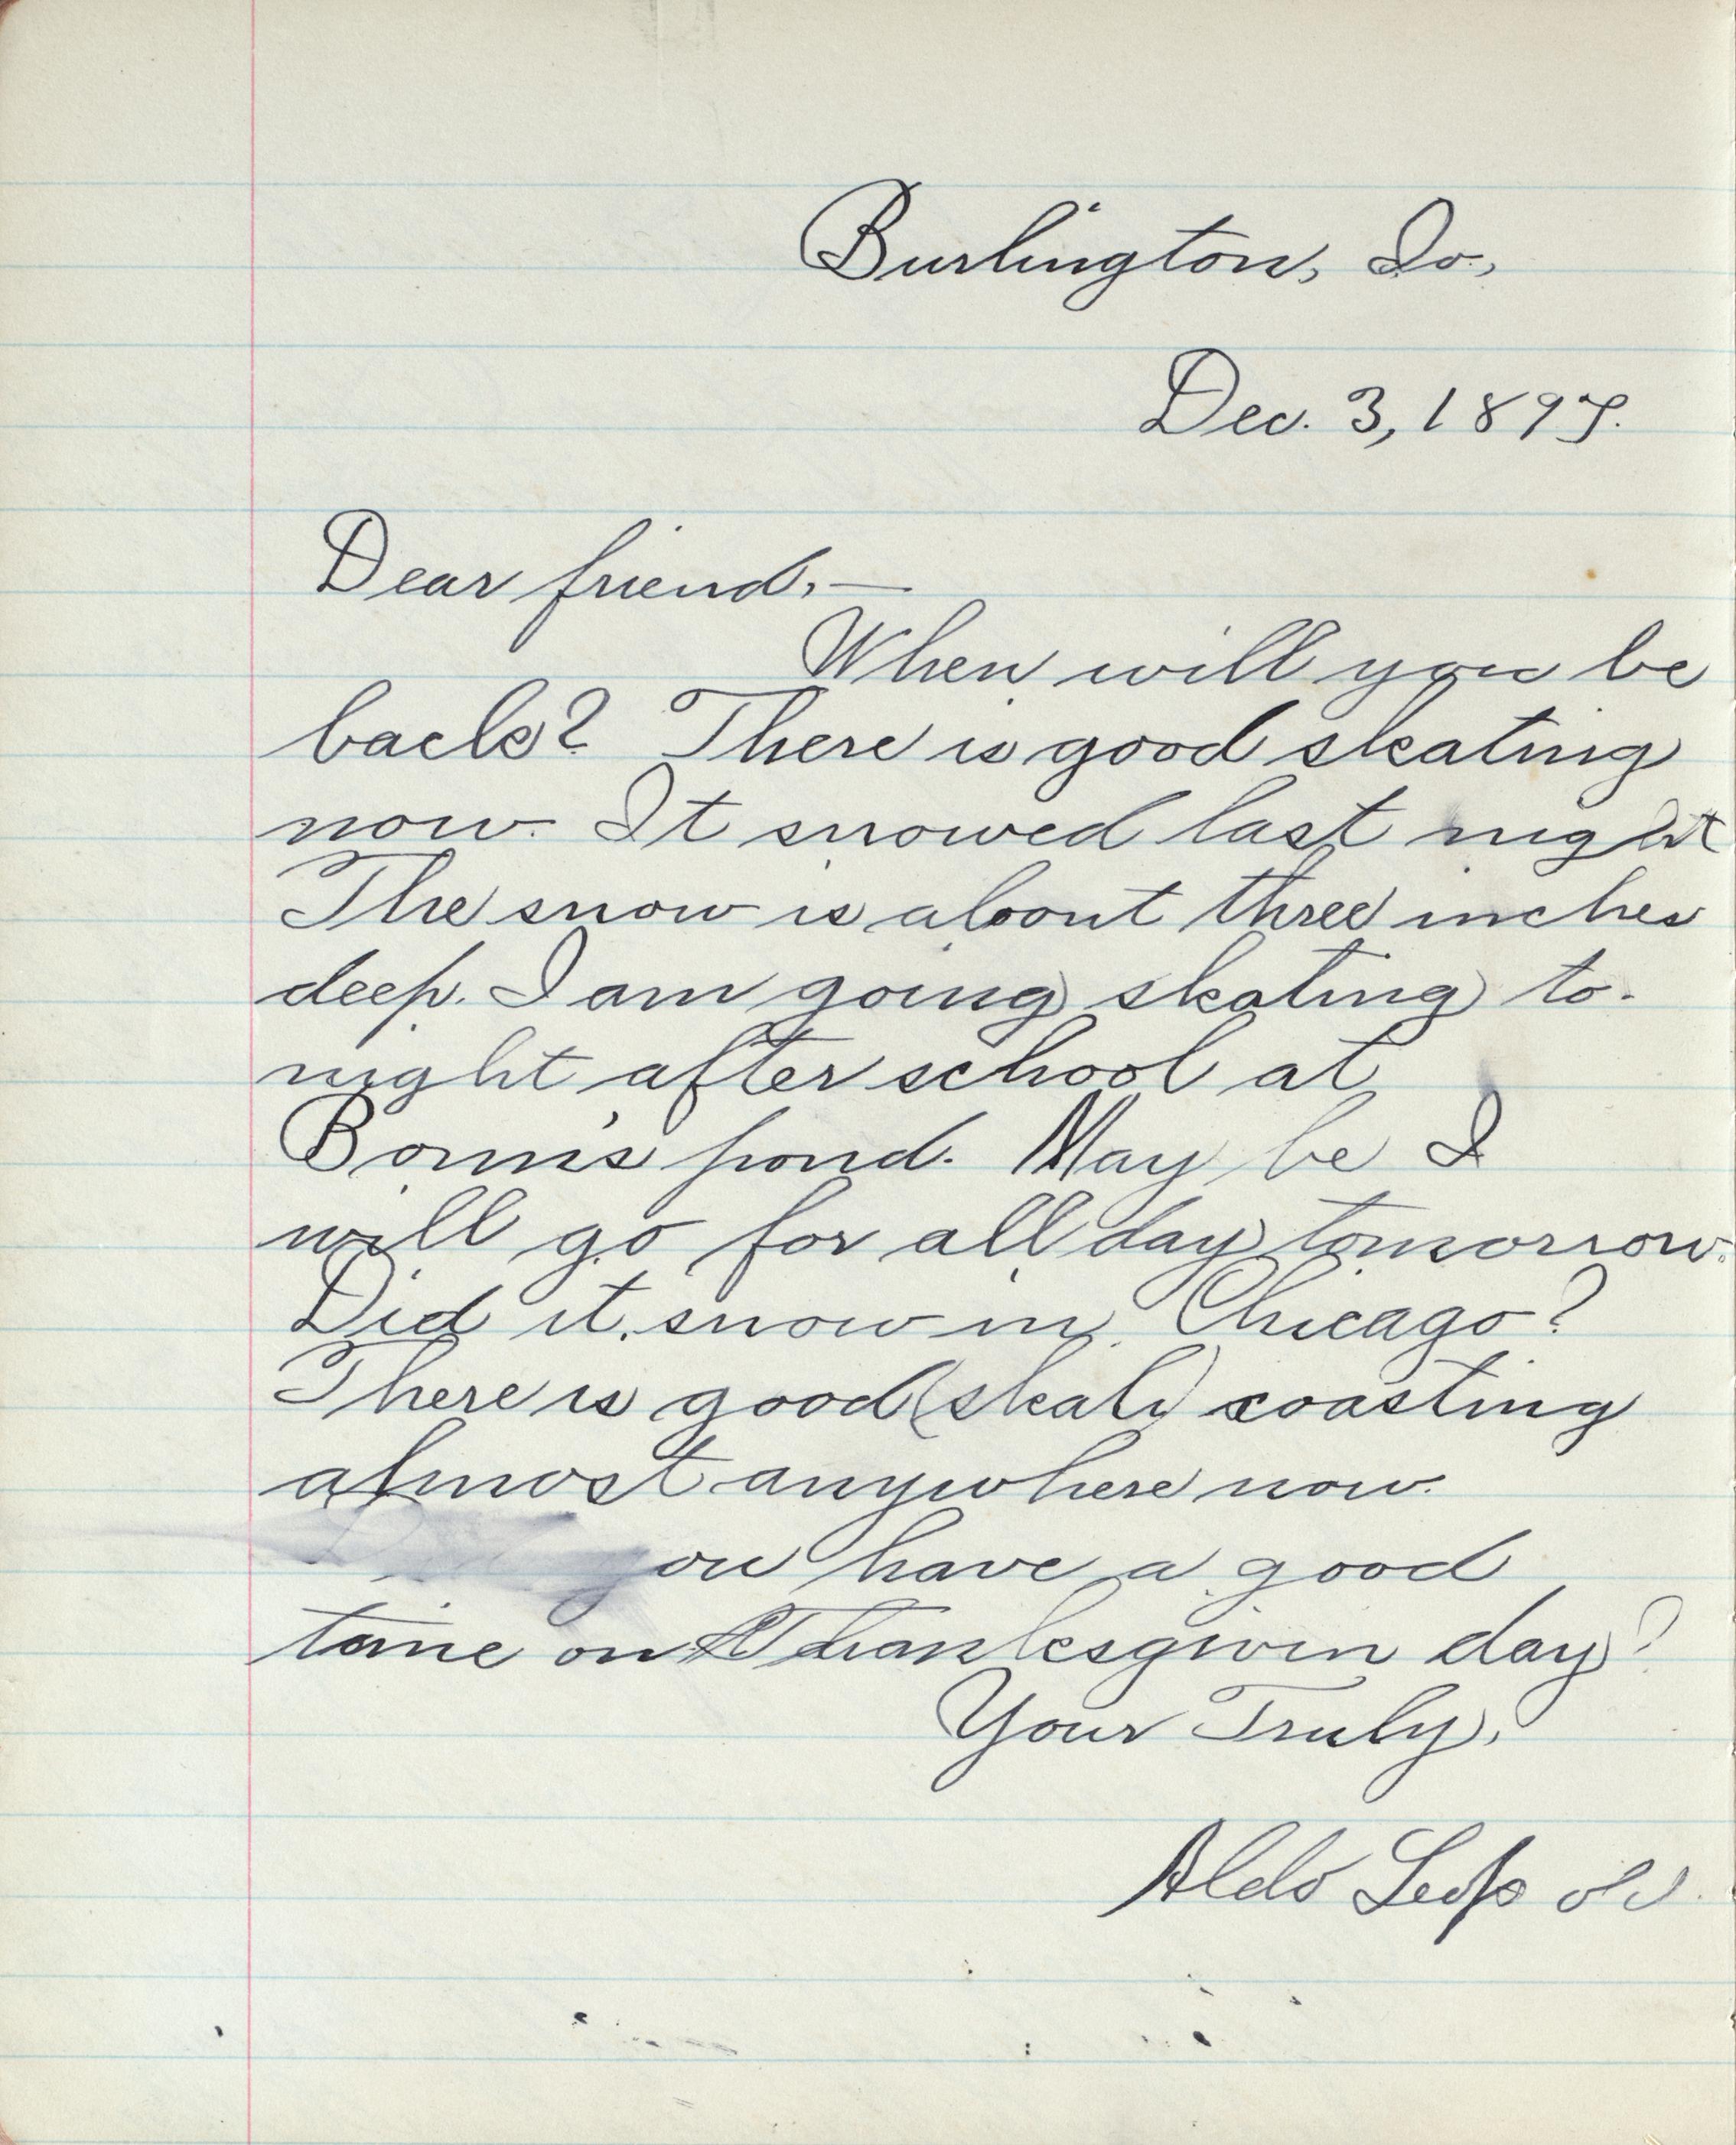 Burlington, Io.,
Dec. 3, 1897.
Dear friend,—
When will you be
back? There is good skating
now. It snowed last night
The snow is about three inches
deep. I am going skating to-
night after school at
pond. May be I
will go for all day tomorrow.
Did it snow in Chicago?
There is good (skati) coasting
almost anywhere now.
you have a good
time on Thanksgivin day?
Your Truly,
Aldo Leopold.